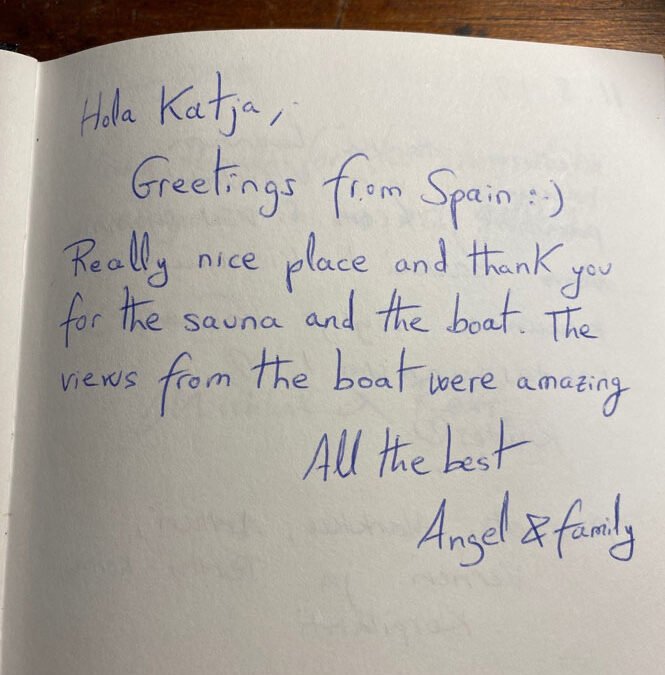 Hola Katja,
Greetings from Spain :-)
Really nice place and thank you
for the sauna and the boat. The
views from the boat were amazing
All the best
Angel & family